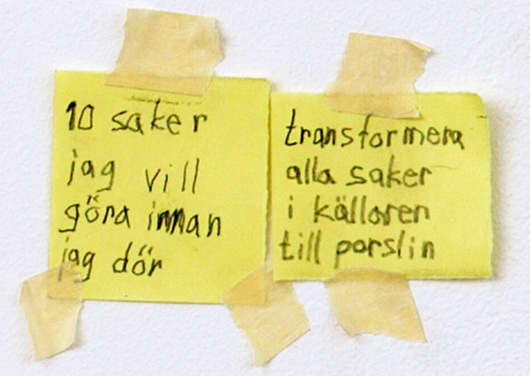 10 saker
jag vill
göra innan
jag dör
transformera
alla saker
i källaren
till porslin